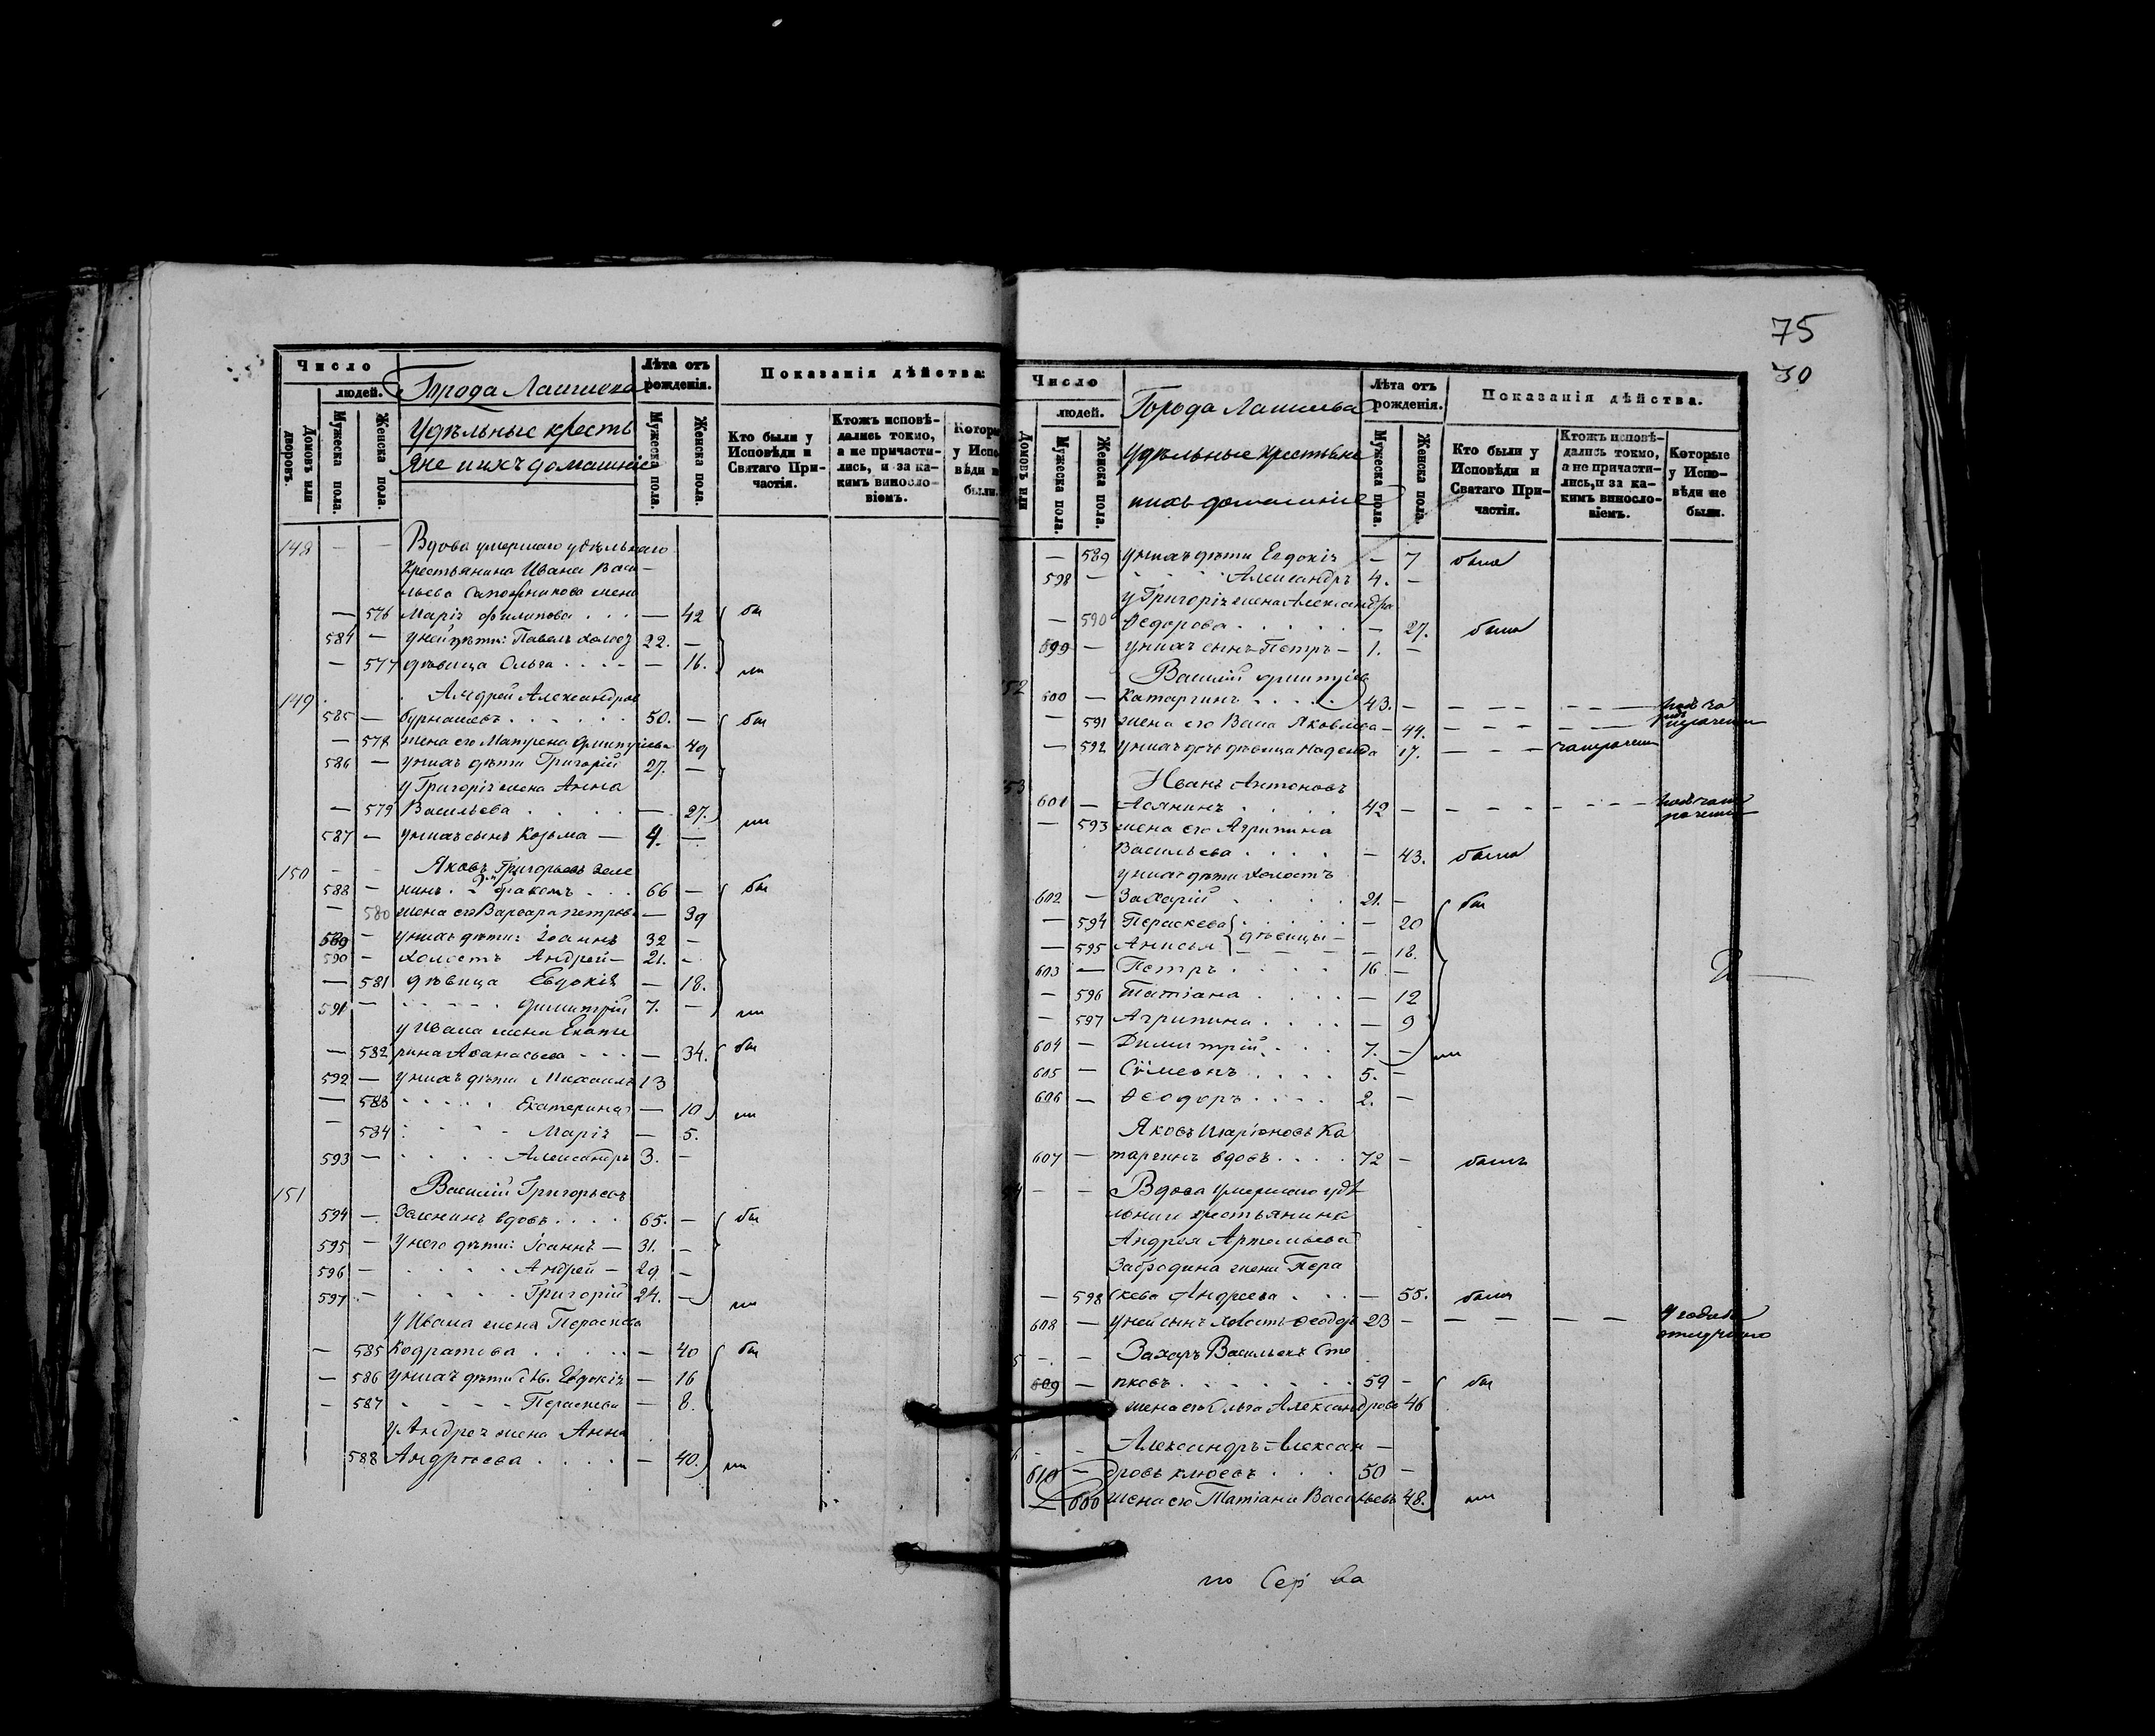 Число
людей.
Домовъ или дворовъ.
Мужеска пола.
Женска пола.
Города Лаишева
Удѣльные кресть
яне и ихъ домашніе
Лѣта отъ рожденія.
Мужеска пола.
Женска пола.
Показанія дѣйства:
Кто были у Исповѣди и Святаго Причастія.
Ктожъ исповѣдались токмо, а не причастились, и за какимъ винословіемъ.
148 — — Вдова умершаго удѣльнаго
Крестьянина Ивана Васи-
льева Сапожникова жена
— 576 Марія Филипова . . . — 42 бы
584 — у ней дѣти: Павелъ холос 22. —
— 577 дѣвица Ольга . . . — 16. ли
149 Андрей Александровъ
585 — бурнашевъ . . . . . . 50. — бы
— 578 жена его Матрена Димитріева 49
586 — у нихъ дѣти Григорій 27. —
у Григорія жена Анна
— 579 Васильева . . . . — 27. ли
587 — у нихъ сынъ Козьма — 4. —
150 — — Яковъ Григорьевъ Зеле
588 — нинъ 2мъ бракомъ . . . 66 — бы
— 580 жена его Варвара петрова — 39
589 — у нихъ дѣти: Іоаннъ 32 —
590 — холостъ Андрей — 21. —
— 581 дѣвица Евдокія — 18.
591 — . . . . . Димитрій 7. — ли
у Ивана жена Екате
— 582 рина Афанасьева . . . — 34. бы
592 — у нихъ дѣти Михаилъ 13
— 583 . . . . . Екатерина — 10 ли
— 584 . . . . Марія — 5.
593 — . . . . Александръ 3. —
151 Василій Григорьевъ
594 — Зеленинъ вдовъ . . . . 65. — бы
595 — У него дѣти: Іоаннъ — 31. —
596 — . . . . . Андрей — 29 —
597 — . . . . . Григорій 24. — ли
У Ивана жена Параскева
— 585 Кодратова . . . . . — 40 бы
— 586 у нихъ дѣти дѣв. Евдокія — 16
— 587 . . . . . Параскева — 8.
У Андрея жена Анна
588 Андреева . . . . — 40. ли
75
30
Число
людей.
Домовъ или
Мужеска пола.
Женска пола.
Города Лаишева
Удѣльные крестьяне
и ихъ домашніе
Лѣта отъ рожденія.
Мужеска пола.
Женска пола.
Показанія дѣйства.
Кто были у Исповѣди и Святаго Причастія.
Ктожъ исповѣдались токмо, а не причастились, и за какимъ винословіемъ.
Которые у Исповѣди не были.
— 589 у нихъ дѣти Евдокія — 7 была
598 — . . . . Александръ 4. —
у Григорія жена Александра
— 590 Ѳедорова . . . . . — 27. была
599 — у нихъ сынъ Петръ — 1. —
52 Василій Димитріевъ
600 — Катаргинъ . . . . . 43. —
— 591 жена его Васа Яковлева — 44.
— 592 у нихъ дочь дѣвица Надежда 17.
53 Иванъ Антоновъ
601 — Асянинъ . . . . . 42 —
— 593 жена его Агрипина
Васильева . . . . — 43. была
у нихъ дѣти холостъ
602 — Захарій . . . . 21. — бы
— 594 Параскева . . . . . — 20
дѣвицы —
— 595 Анисья — 18.
603 — Петръ . . . . . 16 —
— 596 Татіана . . . . — 12
— 597 Агрипина . . . . — 9
604 — Димитрій . . . . 7. — ли
605 — Сѵмеонъ . . . . 5. —
606 — Ѳеодоръ . . . . 2. —
Яковъ Иларіоновъ Ка
607 — таргинъ вдовъ . . . . 72 — былъ
— — Вдова умершаго удѣ
льнаго крестьянина
Андрея Артемьева
Забродина жена Пара
— 598 скева Андреева . . . — 55. была
608 — у ней сынъ холостъ Ѳеодоръ 23 —
5 — — Захаръ Васильевъ Сте
609 — пковъ . . . . . . . 59 — бы
жена его Ольга Александрова 46
6 — — Александръ Алексан —
610 — дровъ клюевъ . . . 50 —
— 600 жена его Татіана Васильева 48. ли
по Сер ва